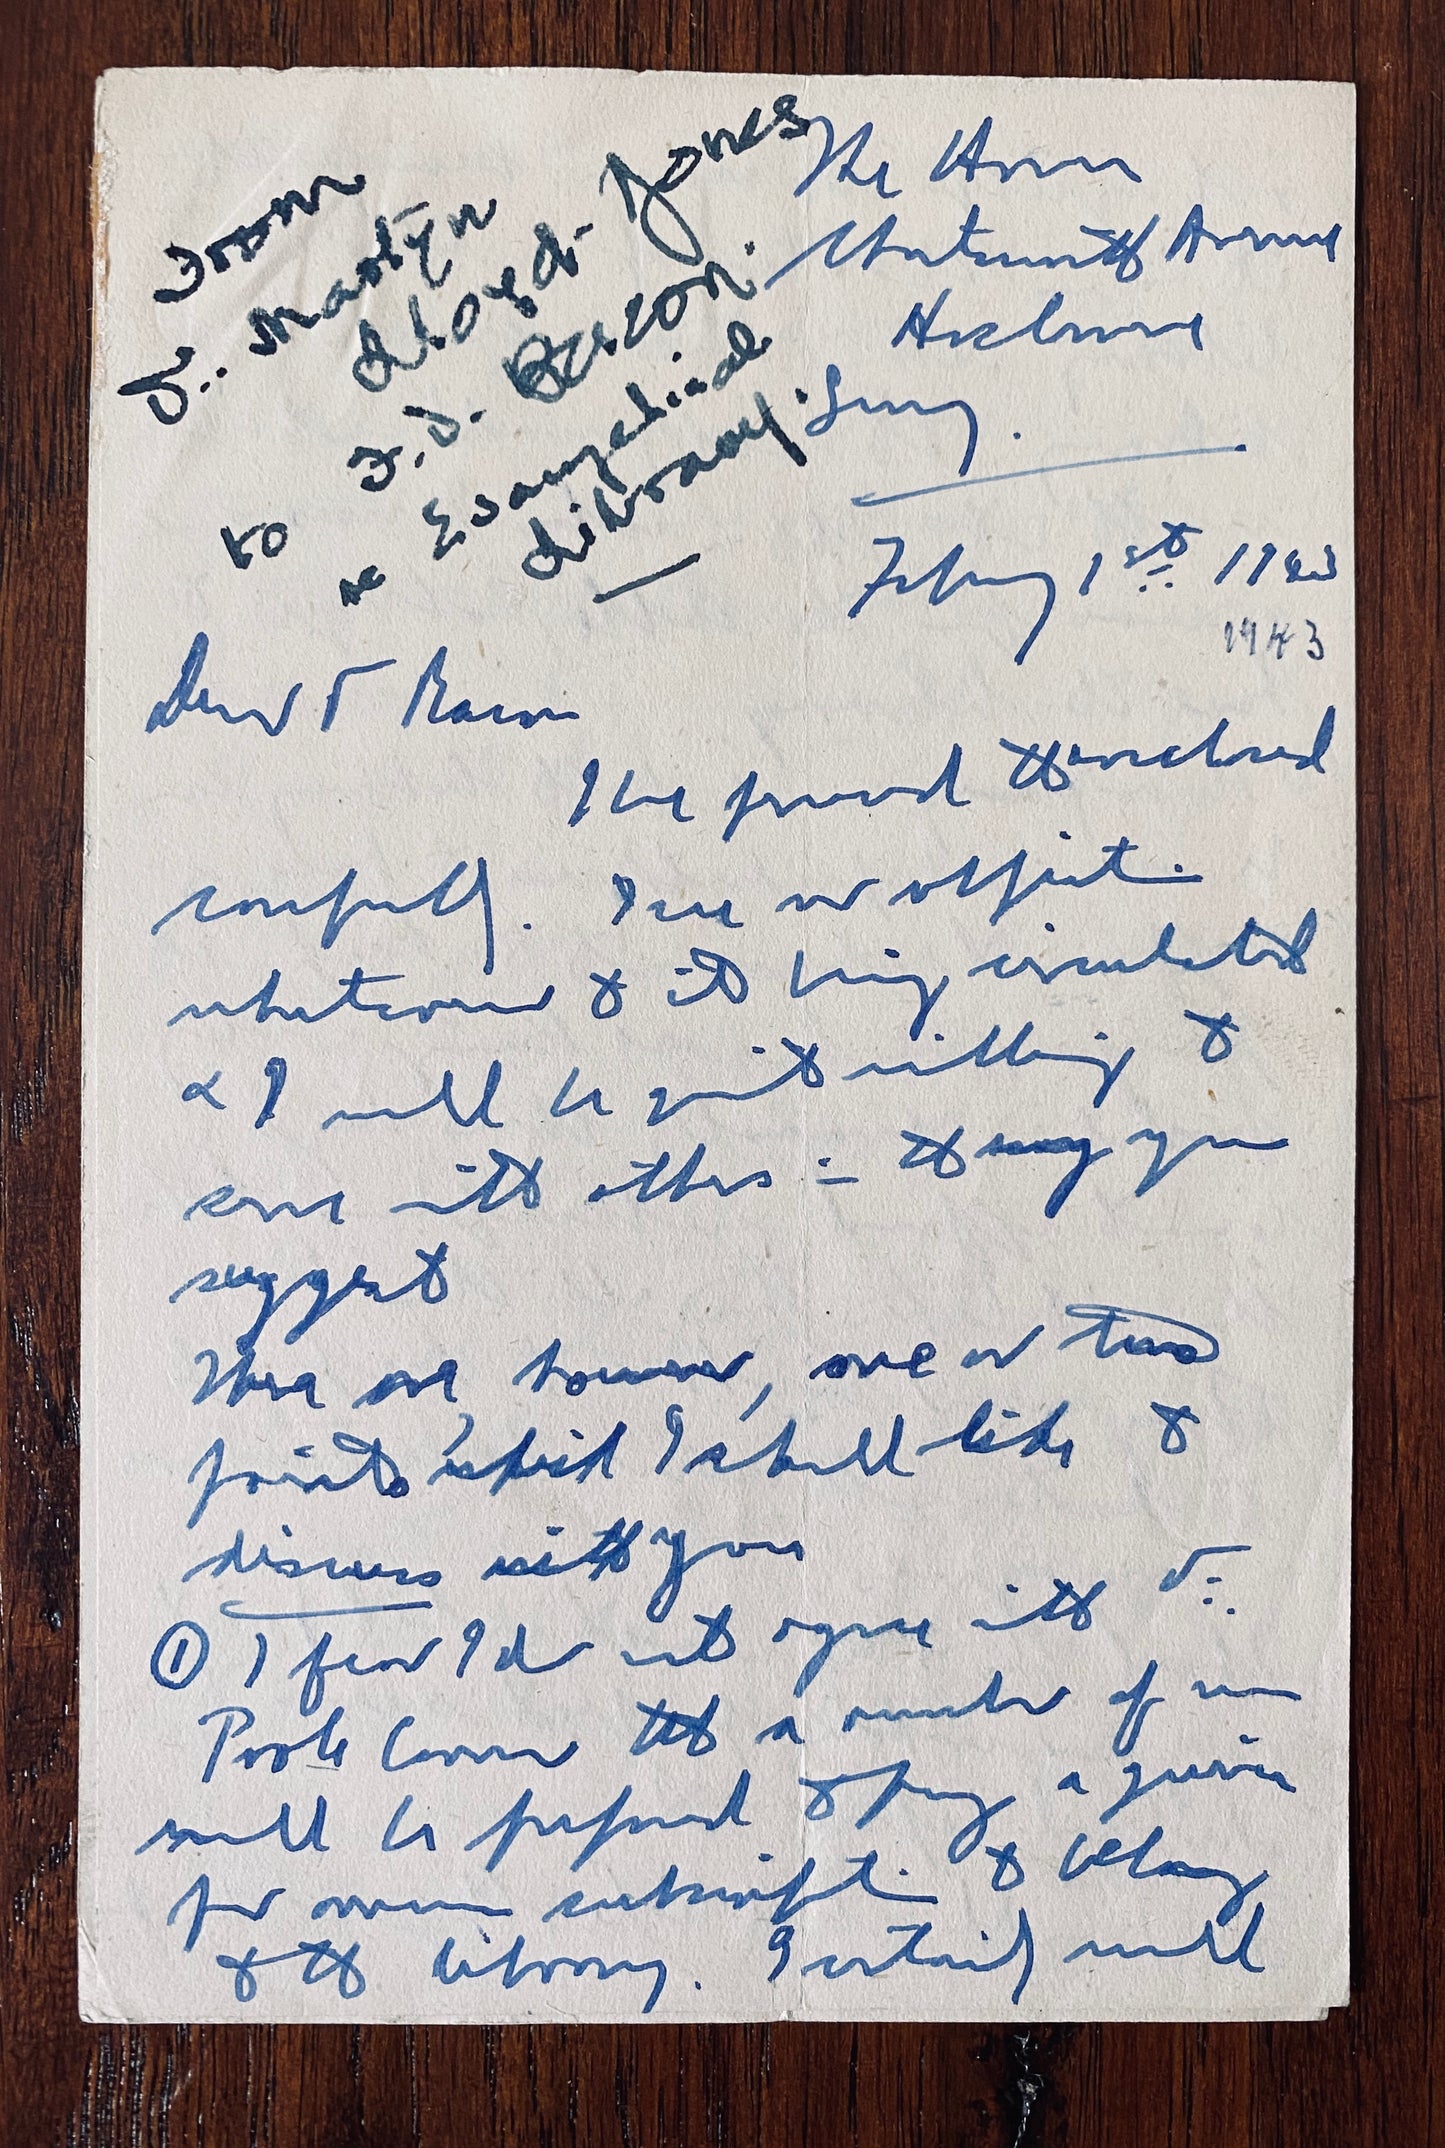 From
Dr. Martyn
Lloyd-Jones
to F.J. Bacon.
re Evangelical
Library.
The Haven
Chatsworth Avenue
Haslemere
Surrey.
February 1st 1943
1943
Dear Mr Bacon
I have perused the enclosed
carefully. I see no objection
whatsoever to it being circulated
& I will be quite willing to
serve with others in the way you
suggest
There are, however, one or two
points which I shall like to
discuss with you
① I fear I do not agree with Dr.
Poole Connor that a number of men
will be prepared to pay a guinea
for annum subscription to belong
to the Library. I certainly will